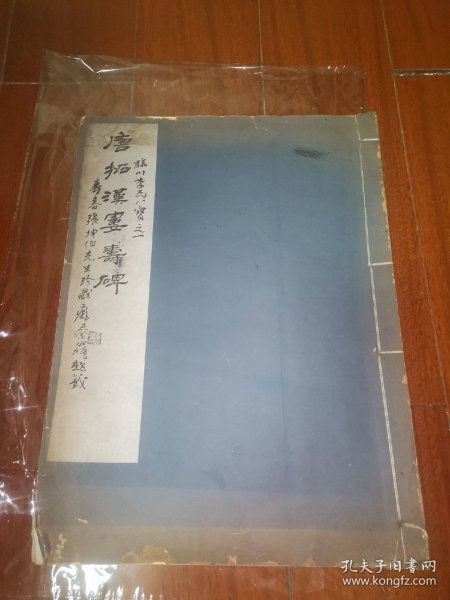 臨川李氏八寶之一
唐拓漢婁壽碑
壽春張坤伯先生珍藏 秦 題籤
孔夫子旧书网
www.kongfz.com